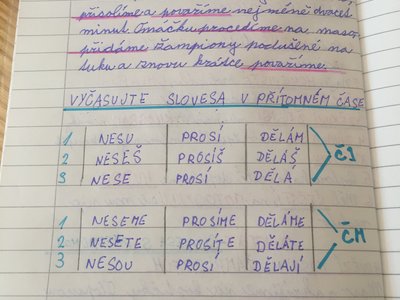 přisolíme a povaříme nejméně dvacet
minut. Omáčku procedíme na maso,
přidáme žampiony podušené na
tuku a znovu krátce povaříme.
VYČASUJTE SLOVESA V PŘÍTOMNÉM ČASE
1 NESU PROSÍ DĚLÁM
2 NESEŠ PROSÍŠ DĚLÁŠ ČJ
3 NESE PROSÍ DĚLÁ
1 NESEME PROSÍME DĚLÁME
2 NESETE PROSÍTE DĚLÁTE ČM
3 NESOU PROSÍ DĚLAJÍ